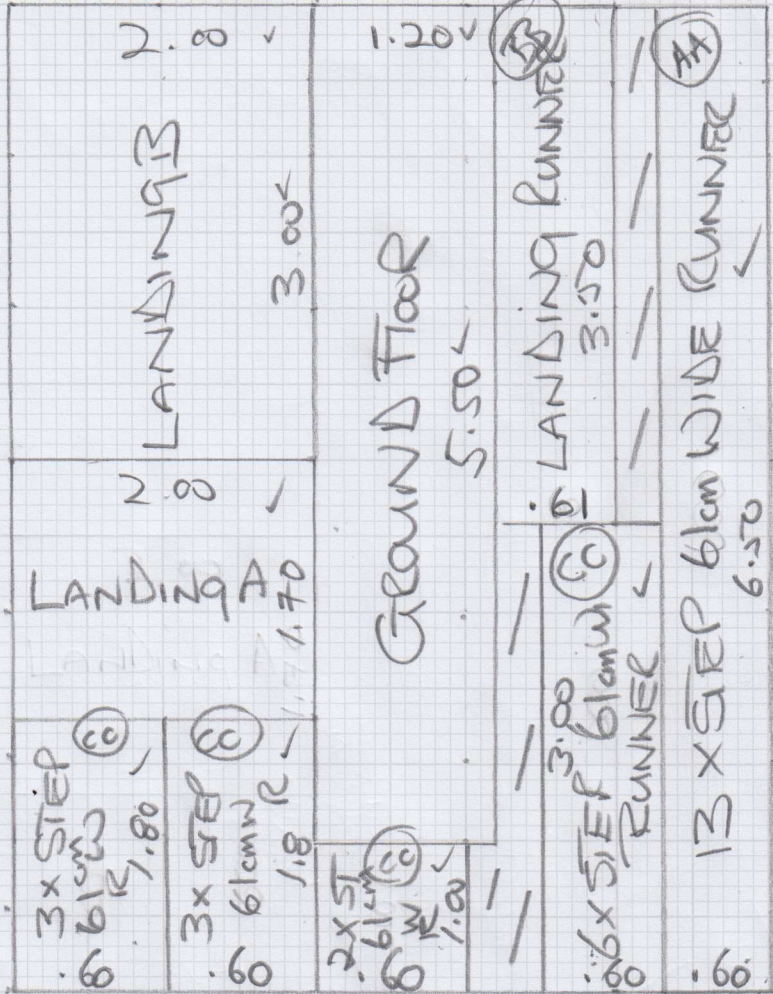 2.00 ✓
LANDING B
3.00 ✓
2.00 ✓
LANDING A
1.70
3 x STEP
61cm
W
R
1.80 ✓
CC
.60
3 x STEP
61cm W
R ✓
1.8
CC
.60
1.20 ✓
GROUND FLOOR
5.50 ✓
2 x ST
61cm
W
R
1.00 ✓
CC
.60
LANDING RUNNER
3.50
.61
CC
3.00
6 x STEP 61cm W
RUNNER ✓
.60
AA
13 x STEP 61cm WIDE RUNNER ✓
6.50
.60